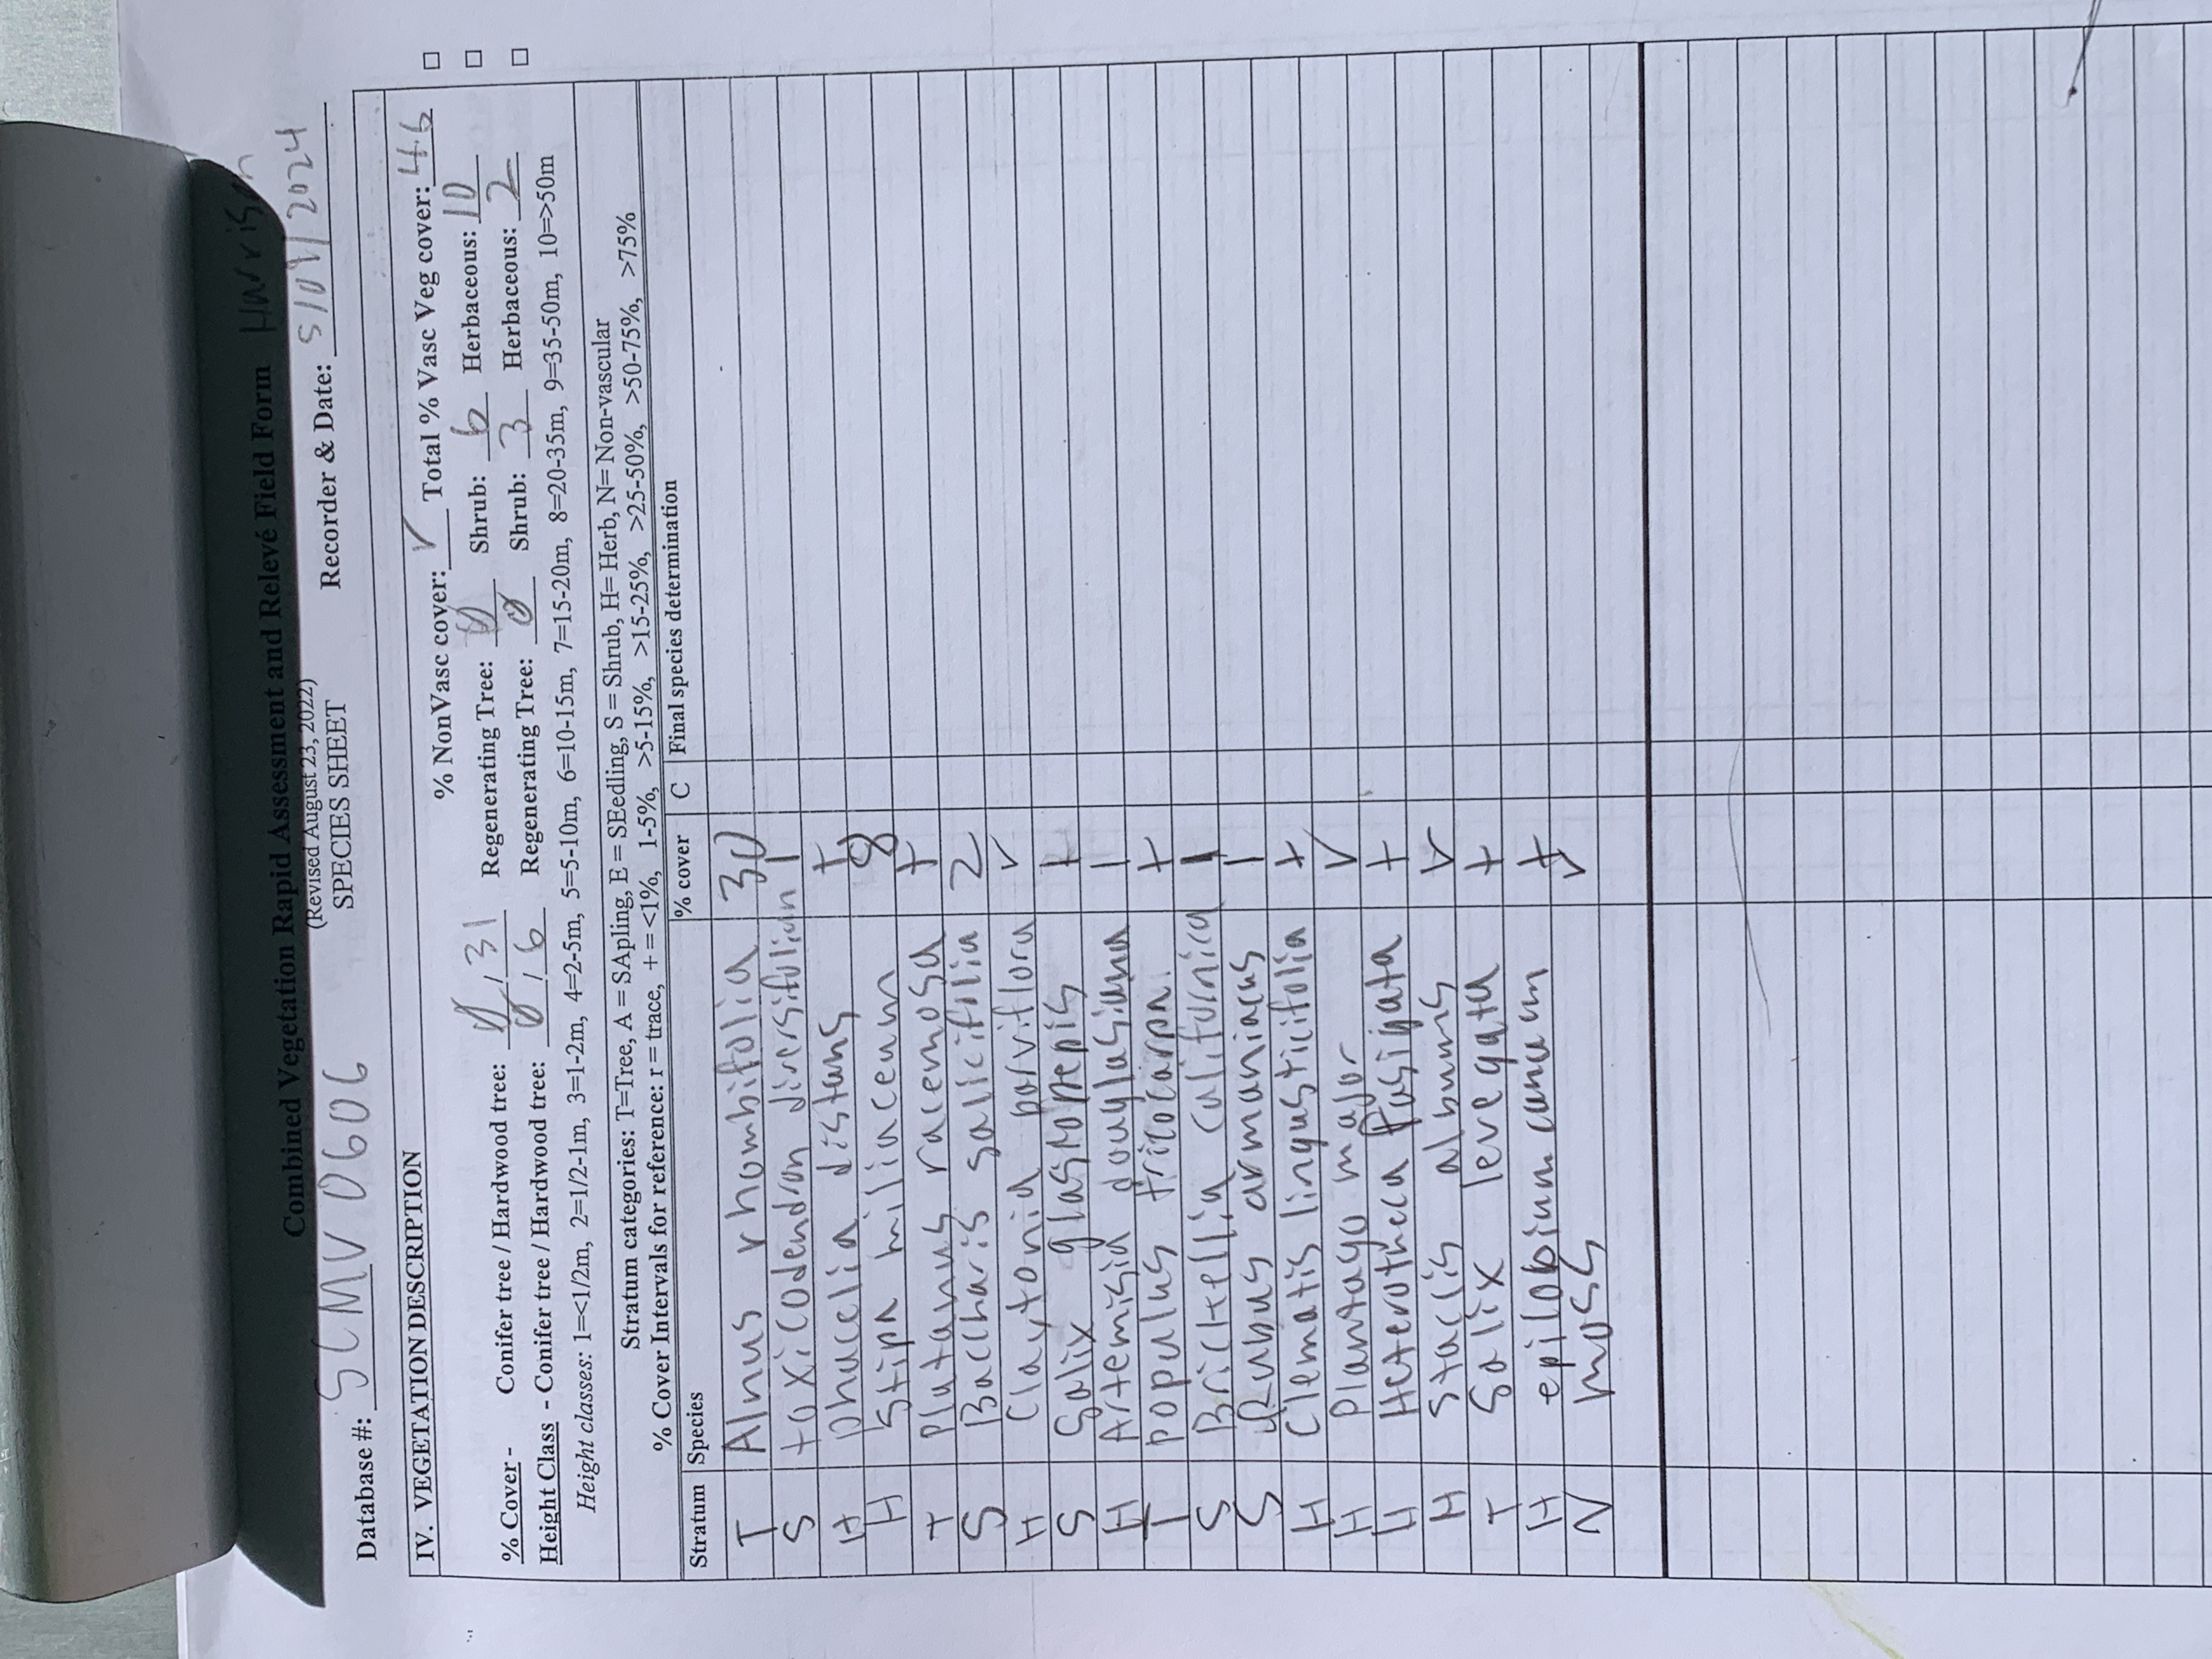 Combined Vegetation Rapid Assessment and Relevé Field Form Harrison
(Revised August 23, 2022)
SPECIES SHEET
Database #: SCMV 0606 Recorder & Date: 5/09/2024
IV. VEGETATION DESCRIPTION
% NonVasc cover: r Total % Vasc Veg cover: 46 □
% Cover - Conifer tree / Hardwood tree: Ø/31 Regenerating Tree: Ø Shrub: 6 Herbaceous: 10 □
Height Class - Conifer tree / Hardwood tree: Ø/6 Regenerating Tree: Ø Shrub: 3 Herbaceous: 2 □
Height classes: 1=<1/2m, 2=1/2-1m, 3=1-2m, 4=2-5m, 5=5-10m, 6=10-15m, 7=15-20m, 8=20-35m, 9=35-50m, 10=>50m
Stratum categories: T=Tree, A = SApling, E = SEedling, S = Shrub, H= Herb, N= Non-vascular
% Cover Intervals for reference: r = trace, + = <1%, 1-5%, >5-15%, >15-25%, >25-50%, >50-75%, >75%
Stratum Species % cover C Final species determination
T Alnus rhombifolia 30
S toxicodendron diversifolium 1
H phacelia distans +
H Stipa miliaceum 8
T Platanus racemosa +
S Baccharis salicifolia 2
H Claytonia parviflora r
S Salix +
H Artemisia douglasiana 1
T populus tricocarpa. +
S Bricktellia californica 1
S Rubus armaniacus 1
H Clematis lingusticifolia +
H Plantago major r
H Heterotheca +
H Stacis albums r
T Salix levegata +
H epilobium canum +
N moss r